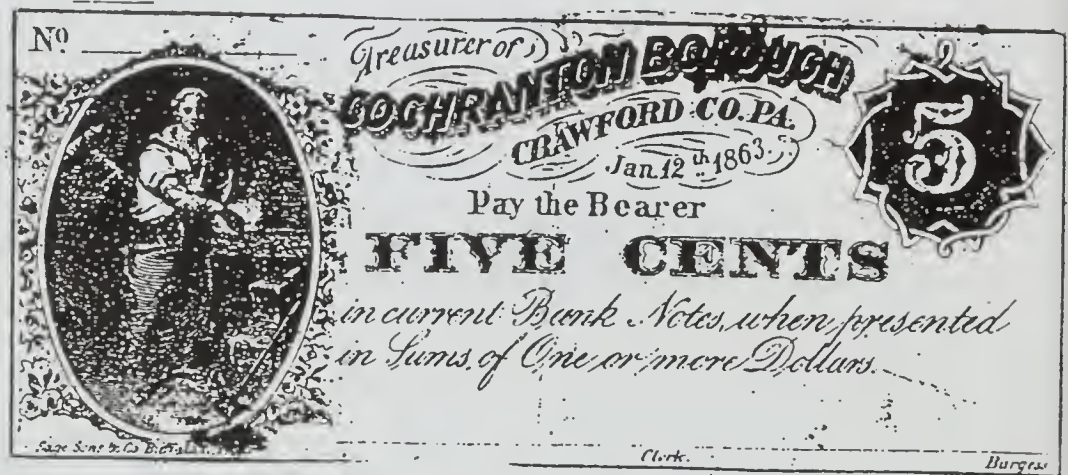 Nº
Treasurer of
COCHRANTON BOROUGH
CRAWFORD CO. PA.
Jan. 12th 1863.
5
Pay the Bearer
FIVE CENTS
in current Bank Notes, when presented
in Sums of One or more Dollars.
Sage Sons & Co
Clerk.
Burgess